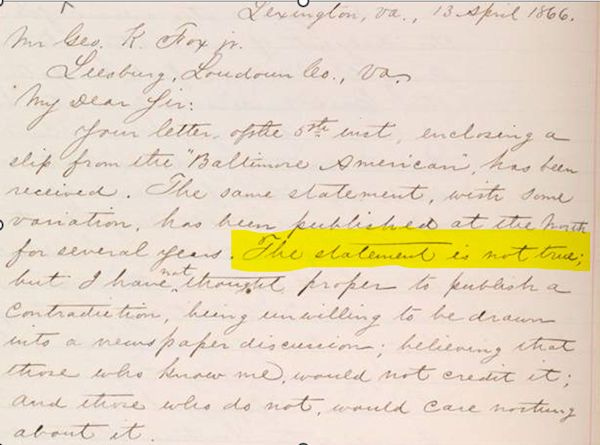 Lexington, Va., 13 April 1866.
Mr Geo. K. Fox jr.
Leesburg, Loudoun Co., Va.
My Dear Sir:
Your letter of the 5th inst, enclosing a
slip from the "Baltimore American", has been
received. The same statement, with some
variation, has been published at the North
for several years. The statement is not true;
but I have not thought proper to publish a
contradiction, being unwilling to be drawn
into a newspaper discussion; believing that
those who know me, would not credit it;
and those who do not, would care nothing
about it.